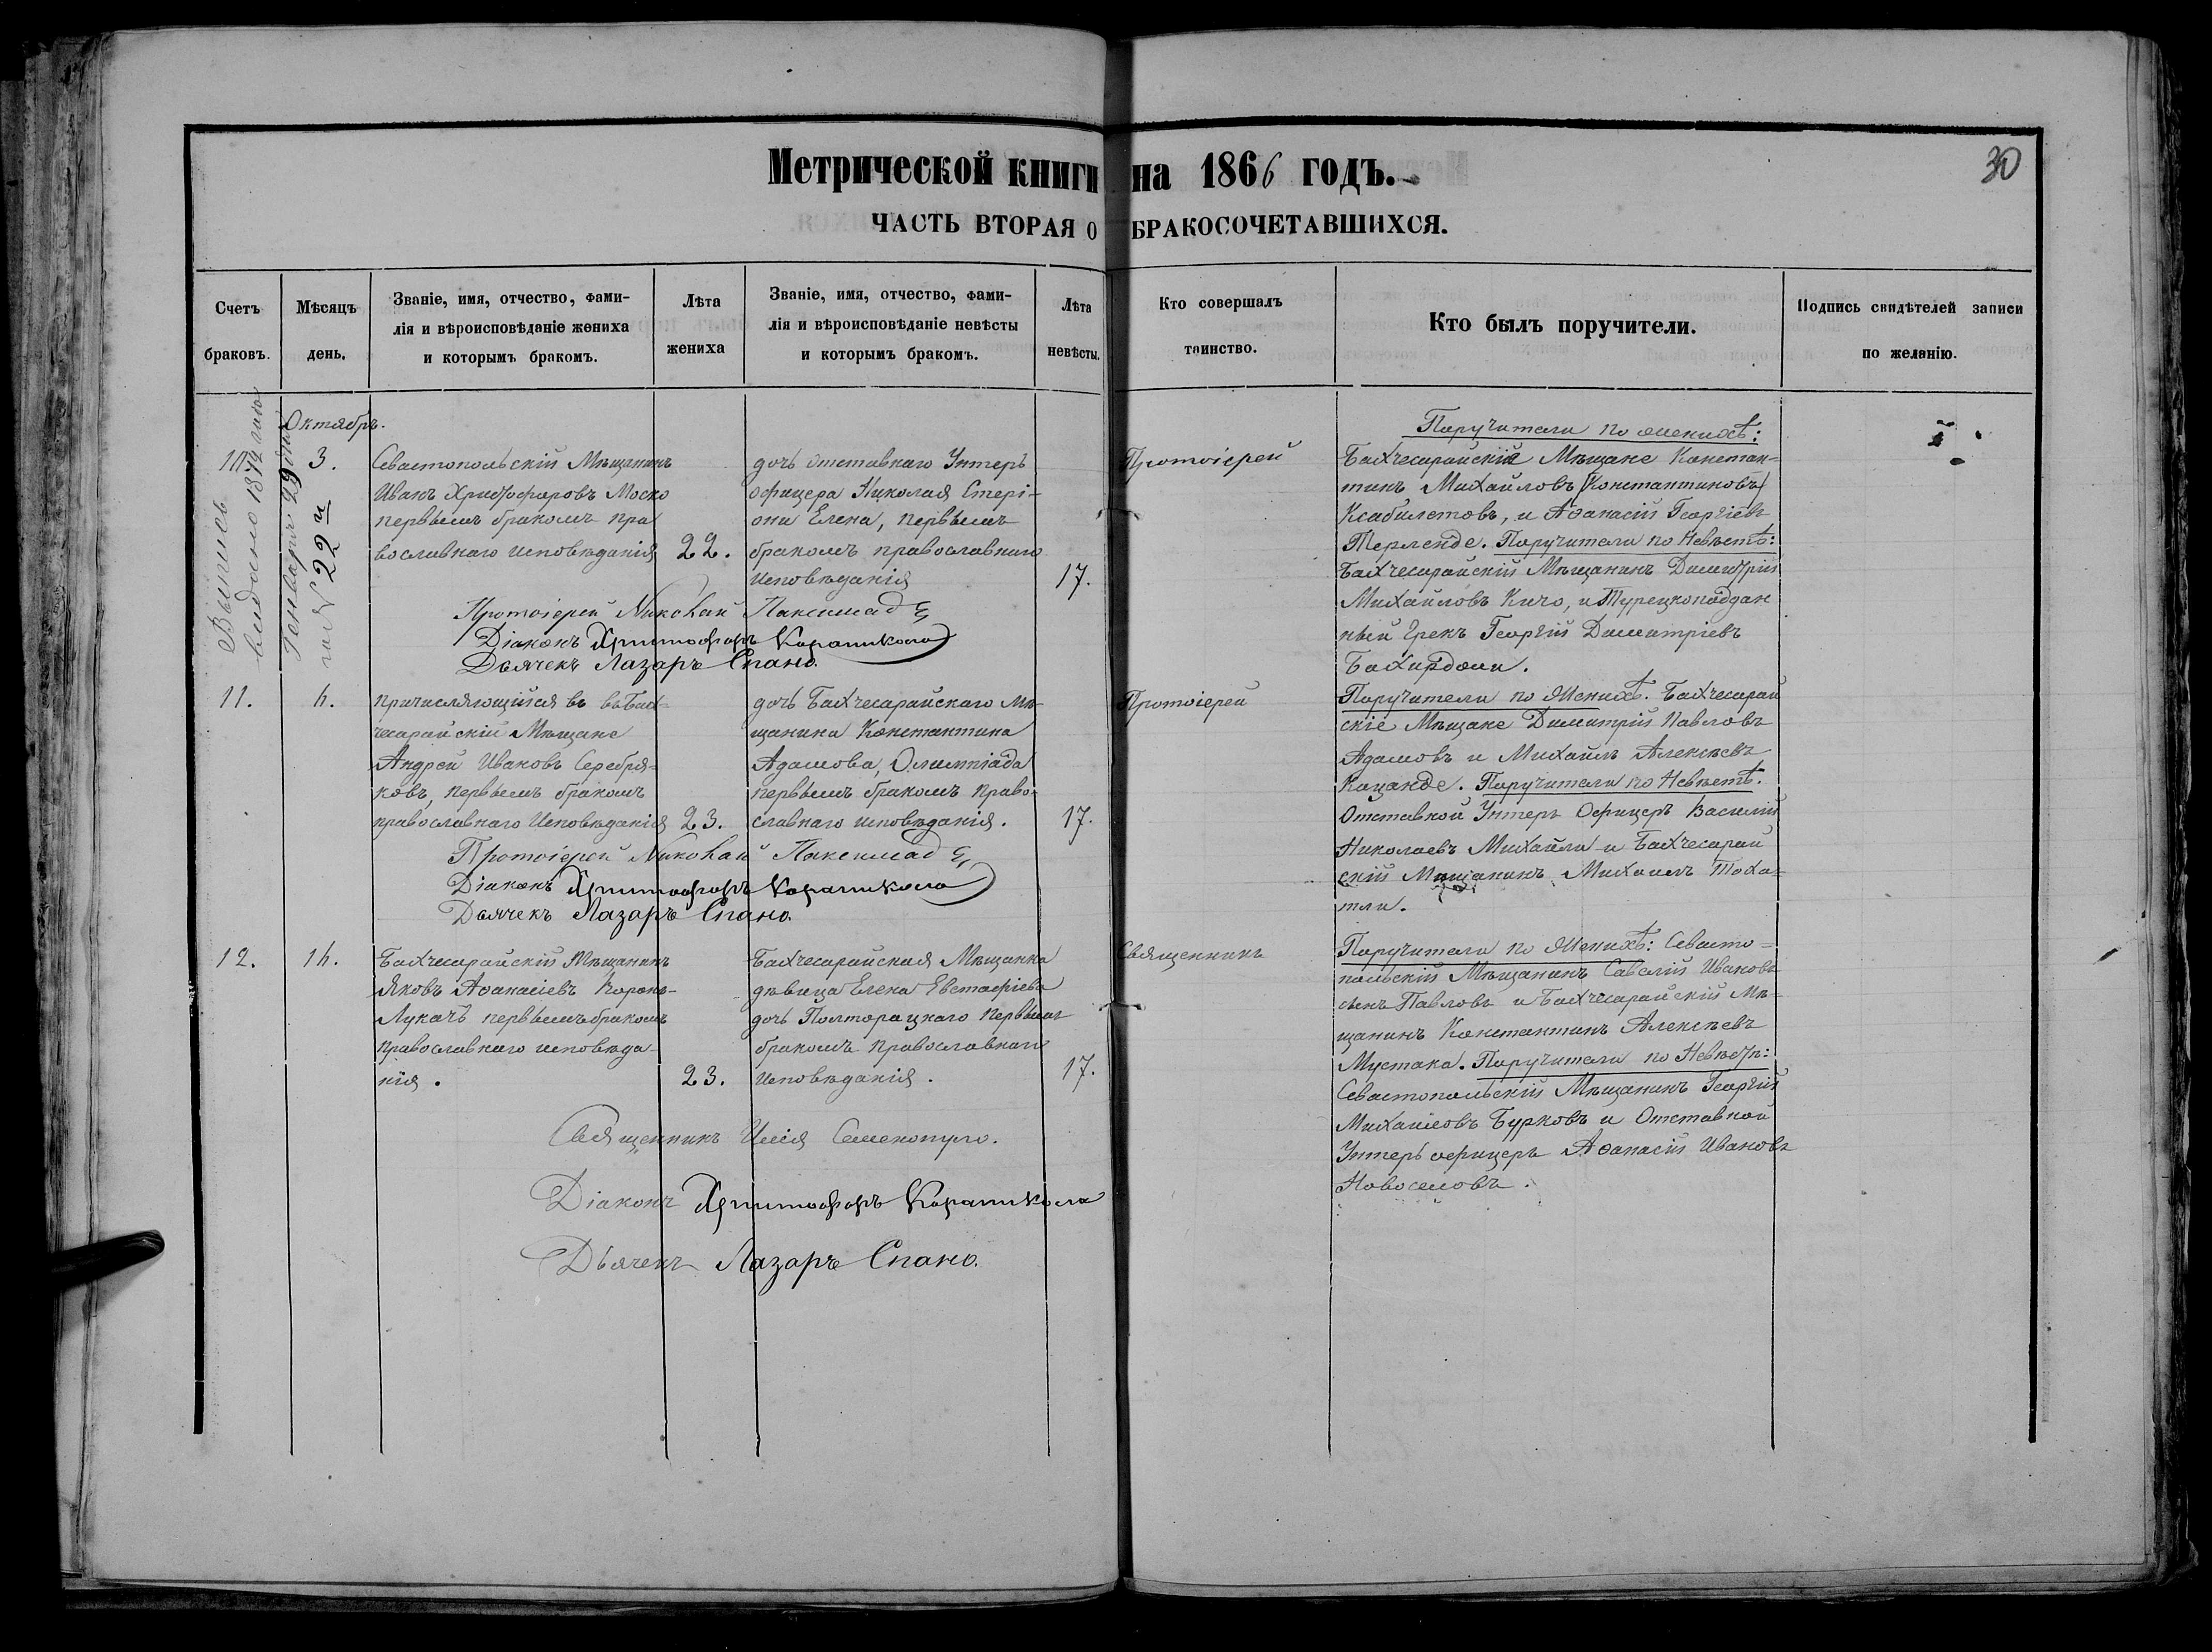 30
Метрической книги на 1866 годъ.
ЧАСТЬ ВТОРАЯ О БРАКОСОЧЕТАВШИХСЯ.
Счетъ браковъ.
Мѣсяцъ день.
Званіе, имя, отчество, фами-
лія и вѣроисповѣданіе жениха
и которымъ бракомъ.
Лѣта жениха
Званіе, имя, отчество, фами-
лія и вѣроисповѣданіе невѣсты
и которымъ бракомъ.
Лѣта невѣсты.
Кто совершалъ таинство.
Кто былъ поручители.
Подпись свидѣтелей записи
по желанію.
Выпись
выдано
Генваря 29 дня
22
Октябрь.
10
3.
Севастопольскій Мѣщанинъ
Иванъ Христофоровъ Моско
первымъ бракомъ пра
вославнаго исповѣданія
22.
дочь отставнаго Унтеръ
офицера Николая Стері-
они Елена, первымъ
бракомъ православнаго
исповѣданія
17.
Протоіерей
Поручители по женихѣ:
Бахчесарайскіе Мѣщане Констан-
тинъ Михайловъ (Константиновъ)
Ксабилетовъ, и Аѳанасій Георгіевъ
Терленде. Поручители по Невѣстѣ:
Бахчесарайскій Мѣщанинъ Димитрій
Михайловъ Кичо, и Турецкоподдан
ный Грекъ Георгій Димитріевъ
Бахирдоли.
Протоіерей Николай Паксимаде
Діаконъ Христофоръ Караникола
Дьячекъ Лазарь Спано.
11.
4.
причисляющійся въ въ Бах-
чесарайскіи Мѣщане
Андрей Ивановъ Серебря-
ковъ, первымъ бракомъ
православнаго Исповѣданія
23.
дочь Бахчесарайскаго Мѣ-
щанина Константина
Адамова, Олимпіада
первымъ бракомъ право-
славнаго исповѣданія.
17.
Протоіерей
Поручители по Женихѣ. Бахчесарай
скіе Мѣщане Димитрій Павловъ
Адамовъ и Михаилъ Алексѣевъ
Кацанде. Поручители по Невѣстѣ.
Отставной Унтеръ Офицеръ Василій
Николаевъ Михайли и Бахчесарай
скій Мѣщанинъ Михаилъ Тоха-
тли.
Протоіерей Николай Паксимаде
Діаконъ Христофоръ Караникола
Дьячекъ Лазарь Спано.
12.
14.
Бахчесарайскій Мѣщанинъ
Яковъ Аѳанасіевъ Короно-
Лукачъ первымъ бракомъ
православнаго исповѣда-
нія.
23.
Бахчесарайская Мѣщанка
дѣвица Елена Евстафіева
дочь Полторацкаго первымъ
бракомъ православнаго
исповѣданія.
17.
Священникъ
Поручители по Женихѣ: Севасто-
польскій Мѣщанинъ Савелій Ивановъ
сынъ Павловъ и Бахчесарайскій Мѣ-
щанинъ Константинъ Алексѣевъ
Мустака. Поручители по Невѣстѣ:
Севастопольскій Мѣщанинъ Георгій
Михаиловъ Бурковъ и Отставной
Унтеръ офицеръ Аѳанасій Ивановъ
Новоселовъ.
Священникъ Илія Семенопуло.
Діаконъ Христофоръ Караникола
Дьячекъ Лазарь Спано.